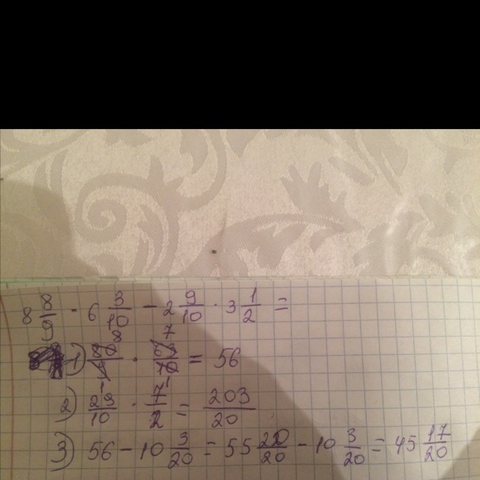 8 8/9 · 6 3/10 − 2 9/10 · 3 1/2 =
1) 80/9 · 63/10 = 56
2) 29/10 · 7/2 = 203/20
3) 56 − 10 3/20 = 55 20/20 − 10 3/20 = 45 17/20